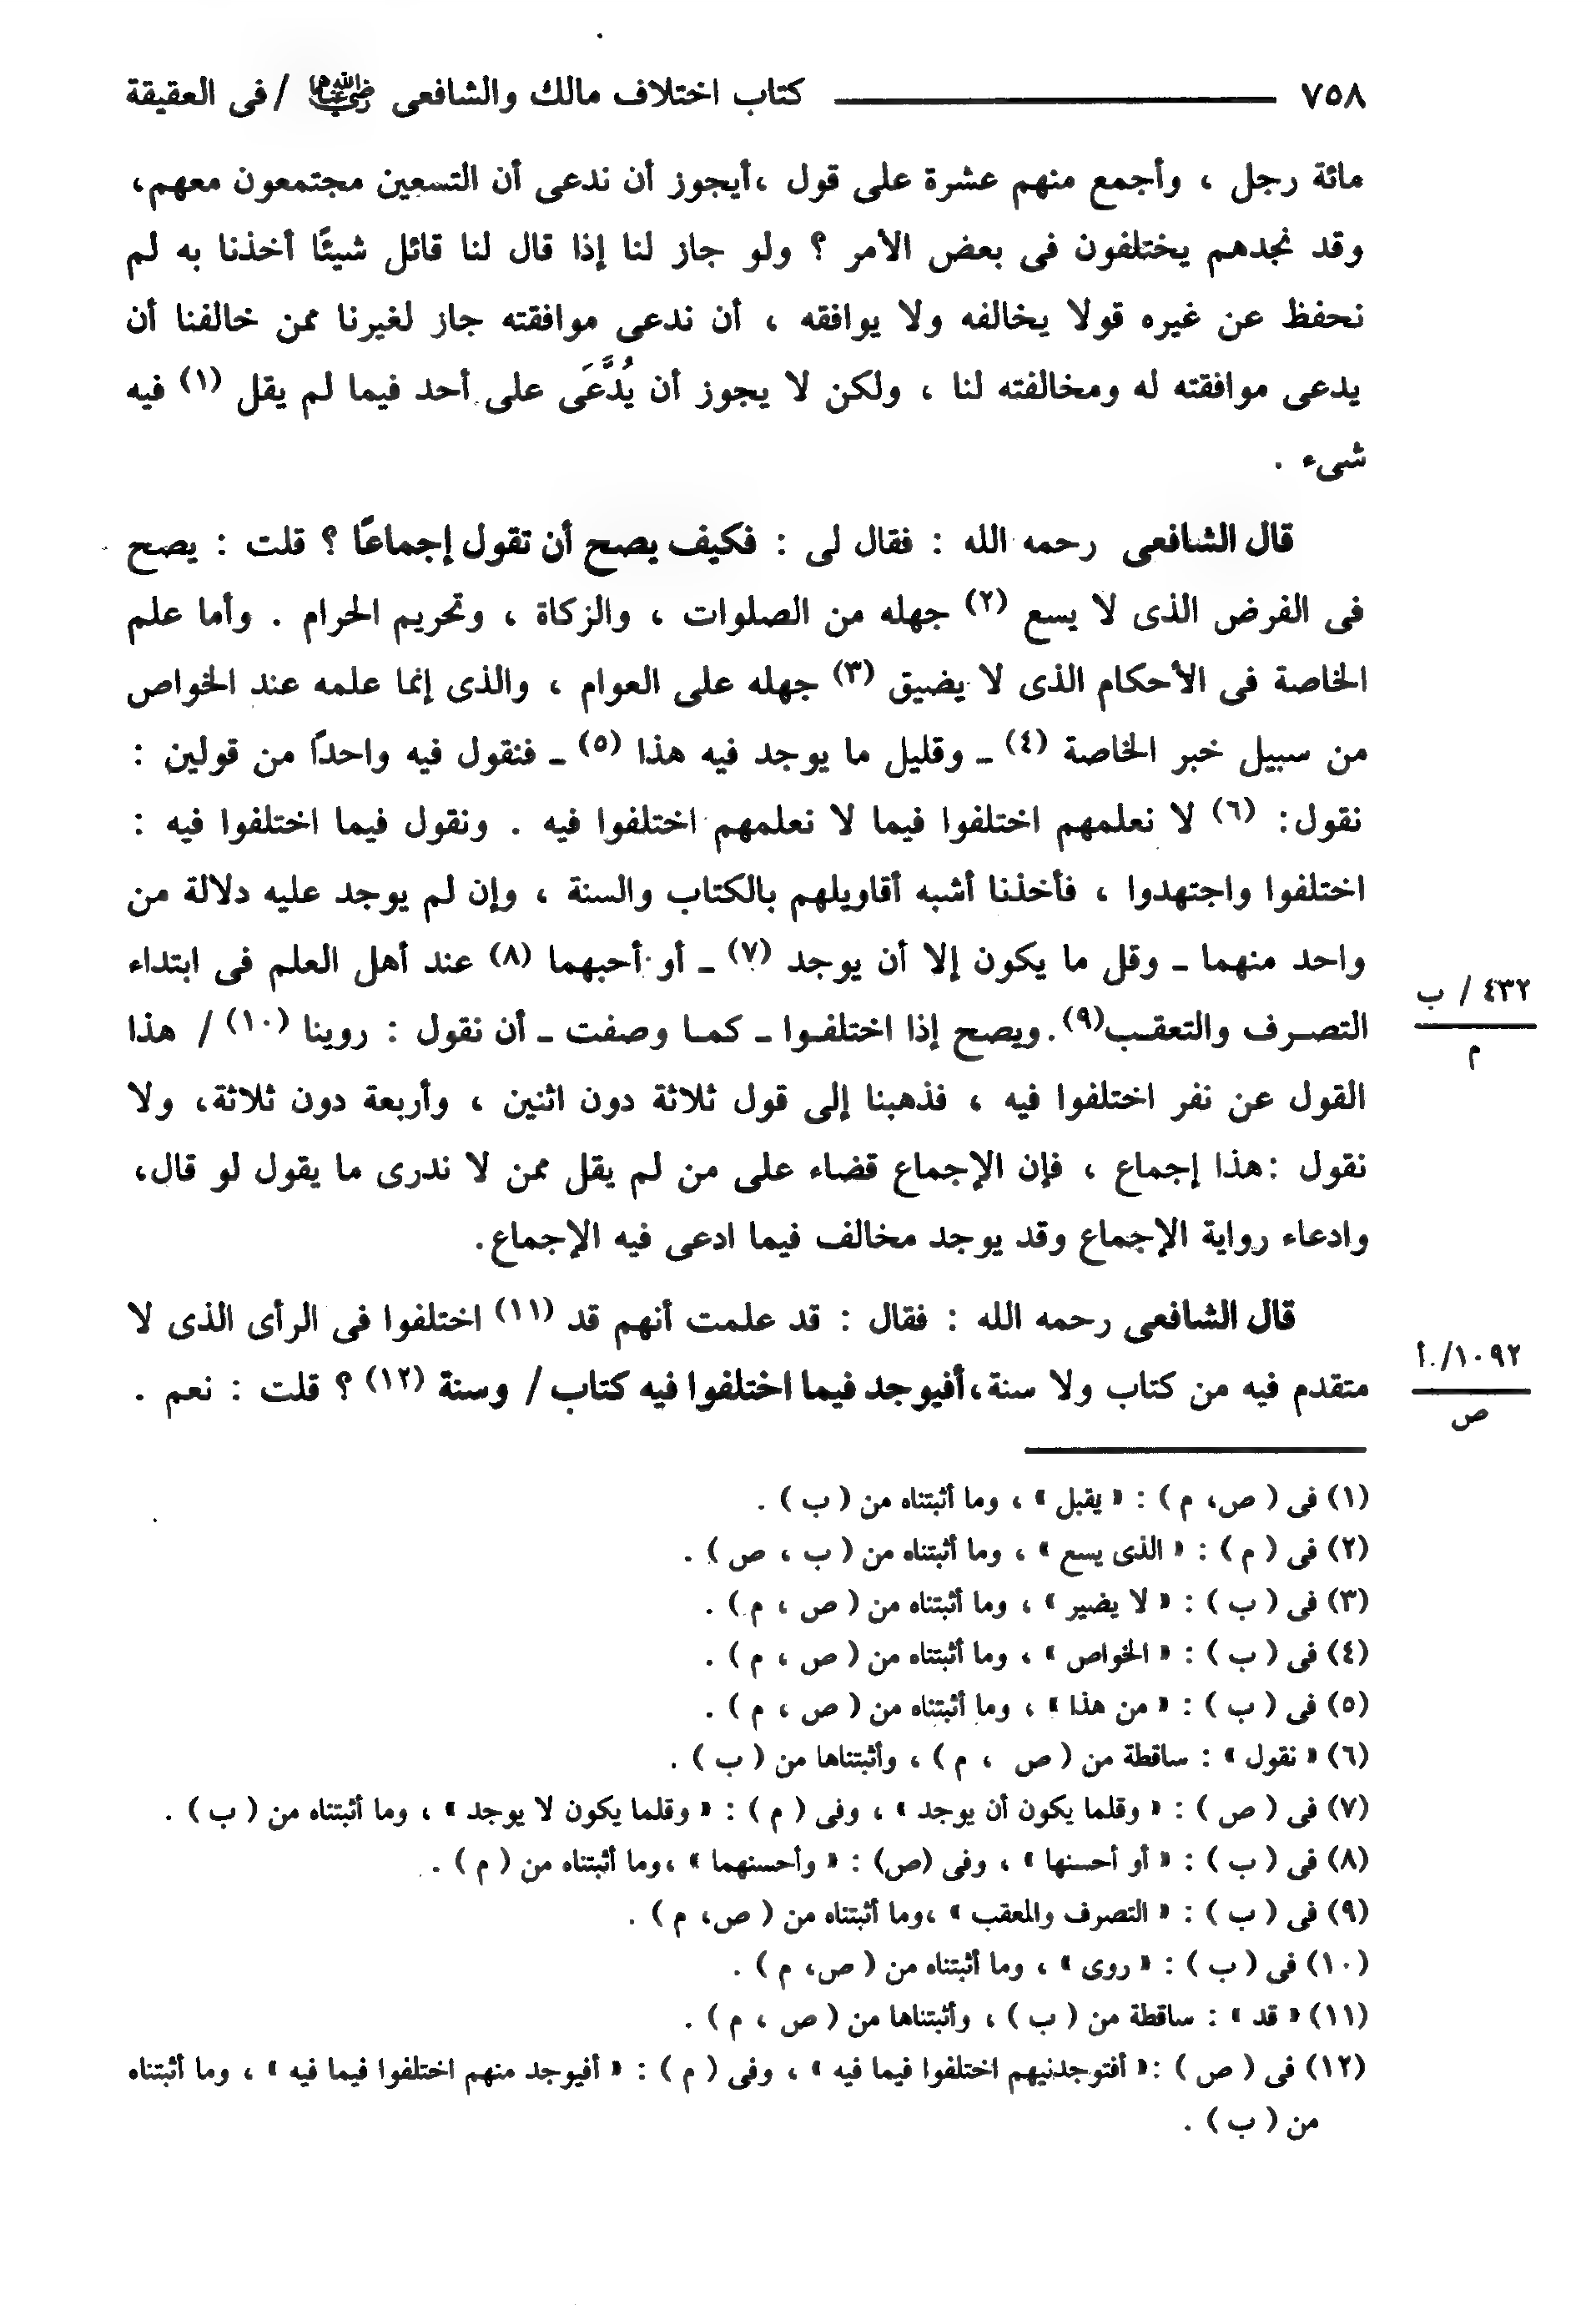 ٧٥٨ كتاب اختلاف مالك والشافعى رضي الله عنهما / فى العقيقة
مائة رجل ، وأجمع منهم عشرة على قول ،أيجوز أن ندعى أن التسعين مجتمعون معهم،
وقد نجدهم يختلفون فى بعض الأمر ؟ ولو جاز لنا إذا قال لنا قائل شيئًا أخذنا به لم
نحفظ عن غيره قولا يخالفه ولا يوافقه ، أن ندعى موافقته جاز لغيرنا ممن خالفنا أن
يدعى موافقته له ومخالفته لنا ، ولكن لا يجوز أن يُدَّعَى على أحد فيما لم يقل (١) فيه
شىء .
قال الشافعى رحمه الله : فقال لى : فكيف يصح أن تقول إجماعًا ؟ قلت : يصح
فى الفرض الذى لا يسع (٢) جهله من الصلوات ، والزكاة ، وتحريم الحرام . وأما علم
الخاصة فى الأحكام الذى لا يضيق (٣) جهله على العوام ، والذى إنما علمه عند الخواص
من سبيل خبر الخاصة (٤) ـ وقليل ما يوجد فيه هذا (٥) ـ فنقول فيه واحدًا من قولين :
نقول: (٦) لا نعلمهم اختلفوا فيما لا نعلمهم اختلفوا فيه . ونقول فيما اختلفوا فيه :
اختلفوا واجتهدوا ، فأخذنا أشبه أقاويلهم بالكتاب والسنة ، وإن لم يوجد عليه دلالة من
واحد منهما ـ وقل ما يكون إلا أن يوجد (٧) ـ أو أحبهما (٨) عند أهل العلم فى ابتداء
٤٣٢ / ب
م
التصـرف والتعقـب(٩).ويصح إذا اختلفـوا ـ كمـا وصفت ـ أن نقول : روينا (١٠) / هذا
القول عن نفر اختلفوا فيه ، فذهبنا إلى قول ثلاثة دون اثنين ، وأربعة دون ثلاثة، ولا
نقول :هذا إجماع ، فإن الإجماع قضاء على من لم يقل ممن لا ندرى ما يقول لو قال،
وادعاء رواية الإجماع وقد يوجد مخالف فيما ادعى فيه الإجماع.
قال الشافعى رحمه الله : فقال : قد علمت أنهم قد (١١) اختلفوا فى الرأى الذى لا
١٠٩٢/أ
ص
متقدم فيه من كتاب ولا سنة،أفيوجد فيما اختلفوا فيه كتاب / وسنة (١٢) ؟ قلت : نعم .
(١) فى ( ص، م ) : « يقبل » ، وما أثبتناه من ( ب ) .
(٢) فى ( م ) : « الذى يسع » ، وما أثبتناه من ( ب ، ص ) .
(٣) فى ( ب ) : « لا يضير » ، وما أثبتناه من ( ص ، م ) .
(٤) فى ( ب ) : « الخواص » ، وما أثبتناه من ( ص ، م ) .
(٥) فى ( ب ) : « من هذا » ، وما أثبتناه من ( ص ، م ) .
(٦) « نقول » : ساقطة من ( ص ، م ) ، وأثبتناها من ( ب ) .
(٧) فى ( ص ) : « وقلما يكون أن يوجد » ، وفى ( م ) : « وقلما يكون لا يوجد » ، وما أثبتناه من ( ب ) .
(٨) فى ( ب ) : « أو أحسنها » ، وفى (ص) : « وأحسنهما » ،وما أثبتناه من ( م ) .
(٩) فى ( ب ) : « التصرف والمعقب » ،وما أثبتناه من ( ص، م ) .
(١٠) فى ( ب ) : « روى » ، وما أثبتناه من ( ص، م ) .
(١١) « قد » : ساقطة من ( ب ) ، وأثبتناها من ( ص ، م ) .
(١٢) فى ( ص ) :« أفتوجدنيهم اختلفوا فيما فيه » ، وفى ( م ) : « أفيوجد منهم اختلفوا فيما فيه » ، وما أثبتناه
من ( ب ) .